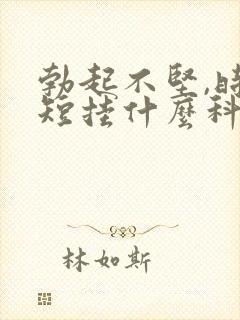 勃起不堅,時
短掛什麼科
林如斯